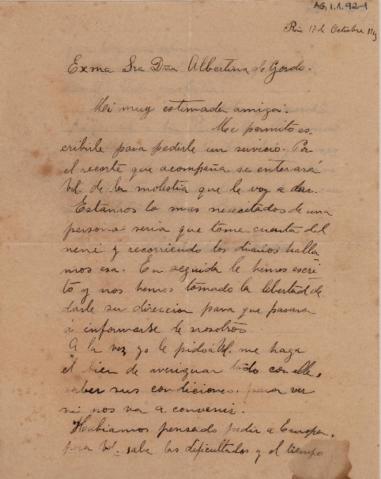 AG.1.1.92-1
Rio 17 de Octubre
Exma Sra Dña Albertina de Gordo.
Mi muy estimada amiga:
Me permito es
cribirle para pederle un servicio. Por
el recorte que acompaña se enterará
Vd. de la molestia que le voy a dar.
Estamos lo mas necesitados de una
persona seria que tome cuenta del
nene y recorriendo los diarios halla
mos esa. En seguida le hemos escri
to y nos hemos tomado la libertad de
darle su direccion para que pasara
á informarse de nosotros
A la vez yo le pido á Vd. me haga
el bien de averiguar todo con ella,
saber sus condiciones para ver
si nos va a convenir.
Habiamos pensado pedir a Europa,
pero Vd. sabe las dificultades y el tiempo